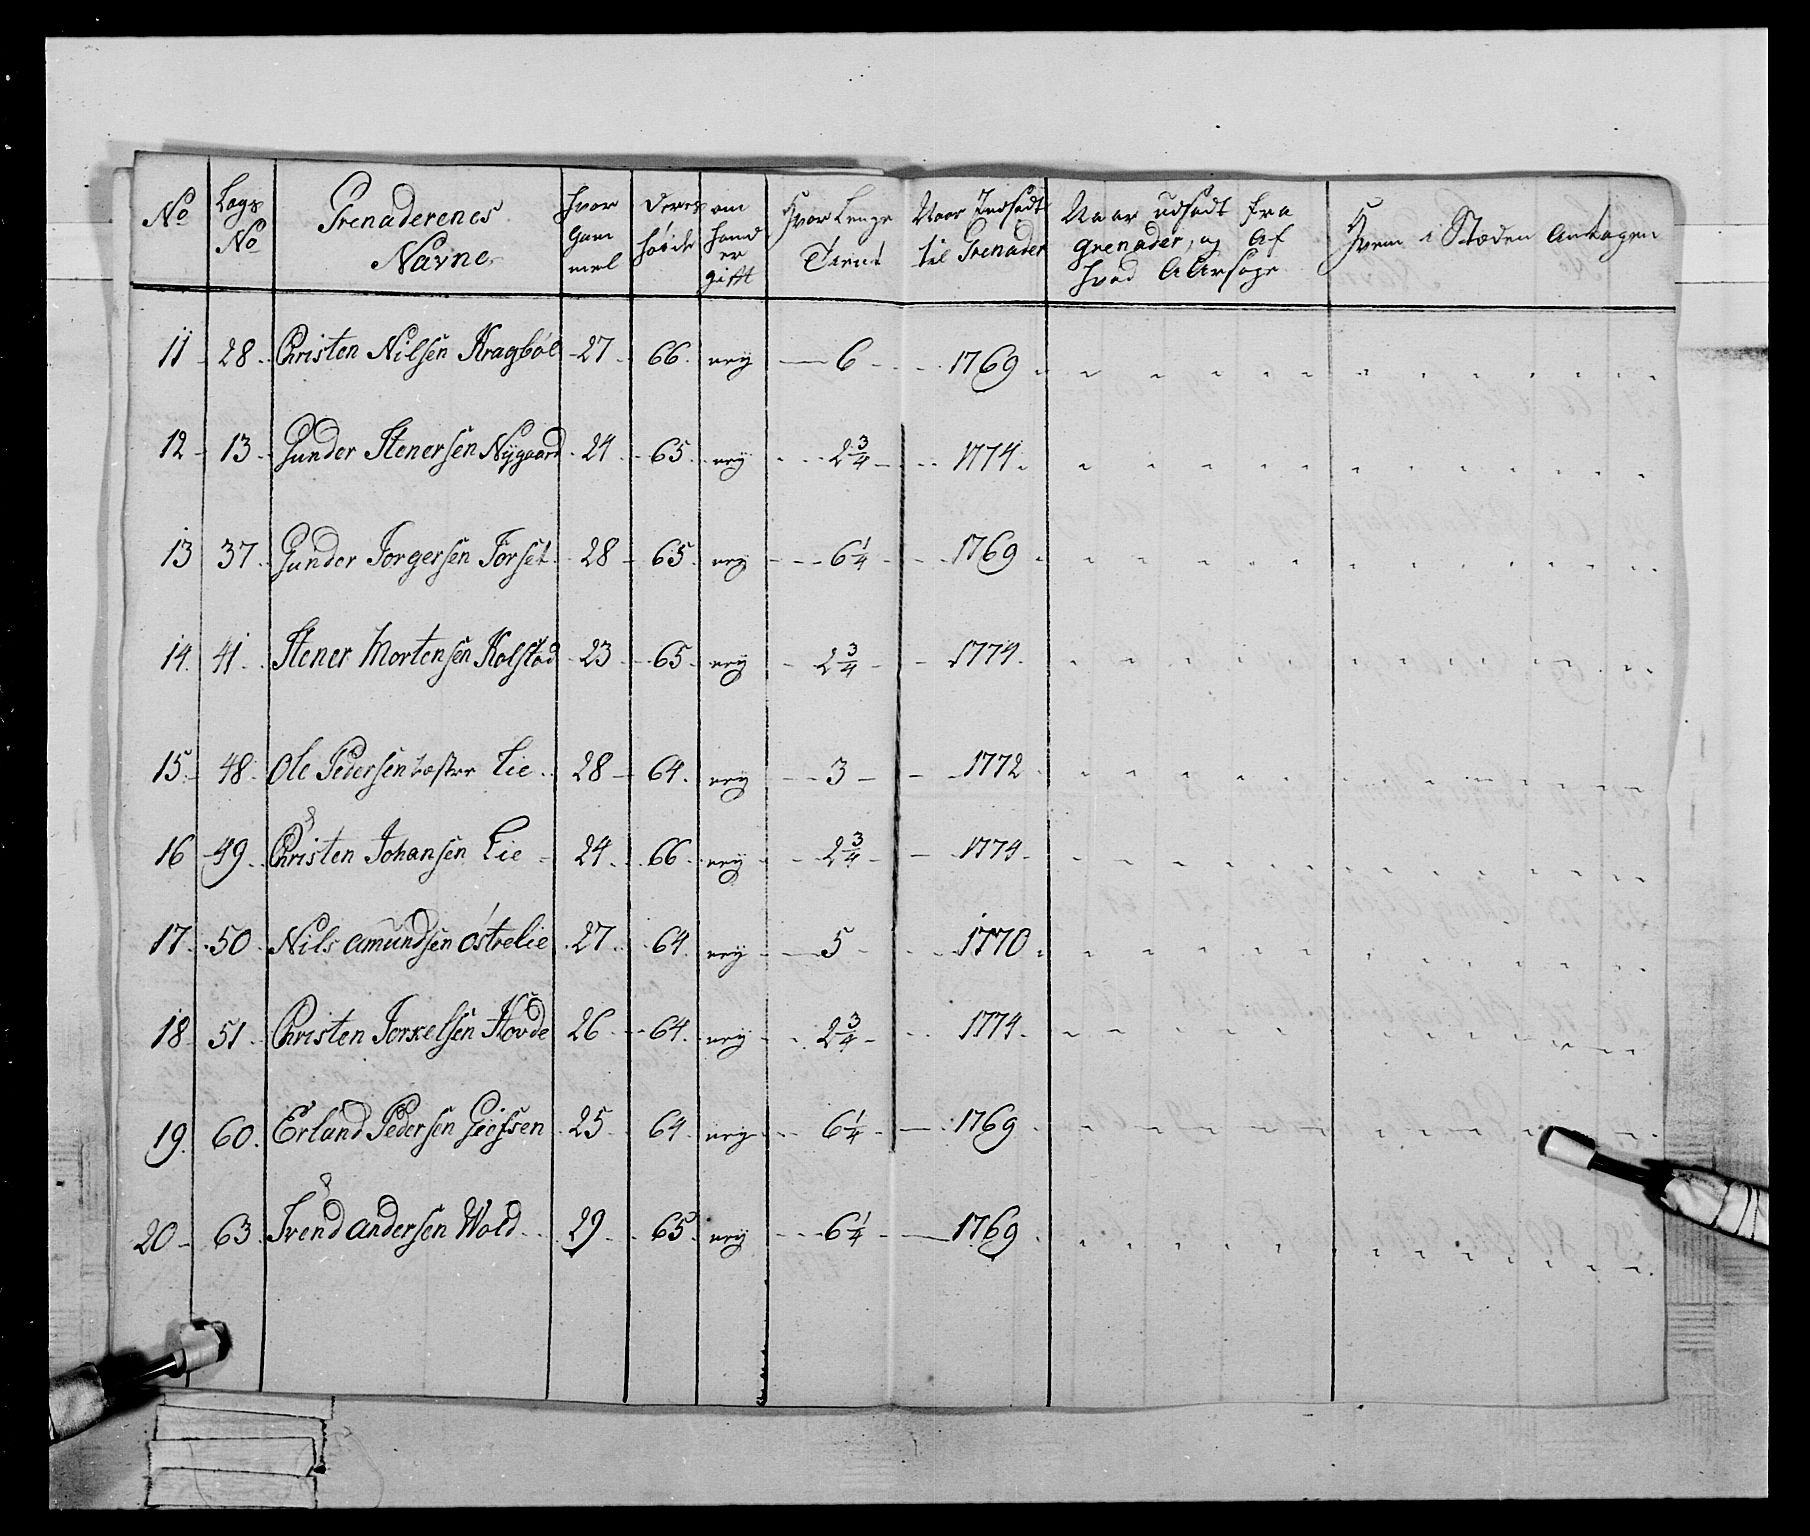 No | Lægs No | Grenaderenes Navne | Hvor Gammel | Deres høide | om hand er gift | Hvor Lenge Tient | Naar Indsadt til Grenader | Naar udsadt fra grenader, og Af hvad Aarsage | Hvem i Stæden Antagen
11 - 28 - Christen Nilsen Kragbøl - 27 - 66 - ney - 6 - 1769
12 - 13 - Gunder Stenersen Nÿgaard - 24 - 65 - ney - 2 3/4 - 1774
13 37 - Gunder Torgersen Torset - 28 - 65 - ney - 6 1/4 - 1769
14 - 41 - Stener Mortensen Kolstad - 23 - 65 - ney - 2 3/4 - 1774
15 - 48 - Ole Pedersen Lie - 28 - 64 - ney - 3 - 1772
16 - 49 - Christen Johansen Lie - 24 - 66 - ney - 2 3/4 - 1774
17 - 50 - Nils amundsen østrelie - 27 - 64 - ney - 5 - 1770
18 - 51 - Christen Torkelsen Hovde - 26 - 64 - ney - 2 3/4 - 1774
19 - 60 - Erland Pedersen - 25 - 64 - ney - 6 1/4 - 1769
20 - 63 - Svend andersen Wold - 29 - 65 - ney - 6 1/4 - 1769